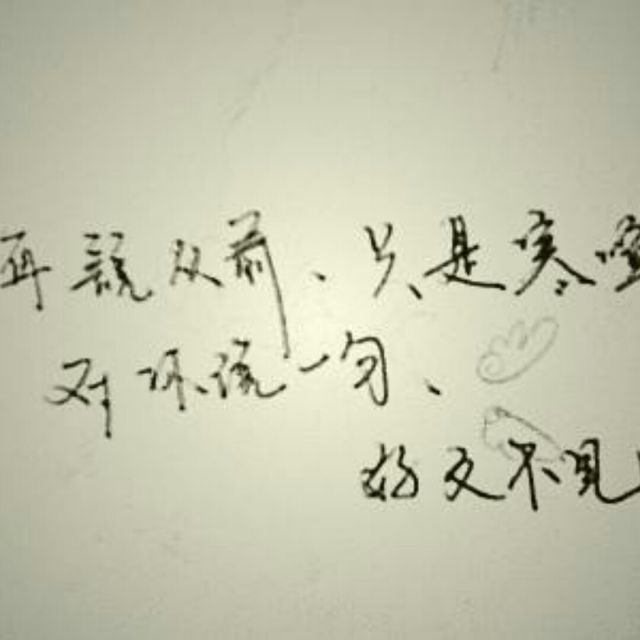 再說从前、只是寒喧
对你说一句、
好久不见